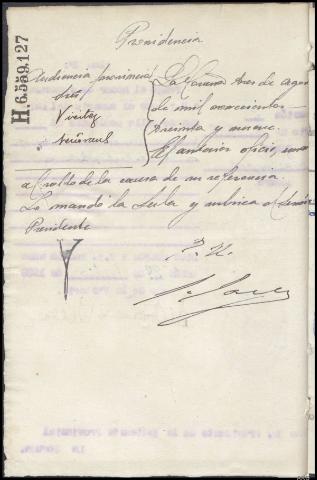 H. 6.559.127
Presidencia
Audiencia provincial
Sres
Vieitez
La Coruña tres de agos
to de mil novecientos
treinta y nueve.
El anterior oficio, una
al rollo de la causa de su referencia.
Lo mandó la Sala y rubrica el Señor
Presidente